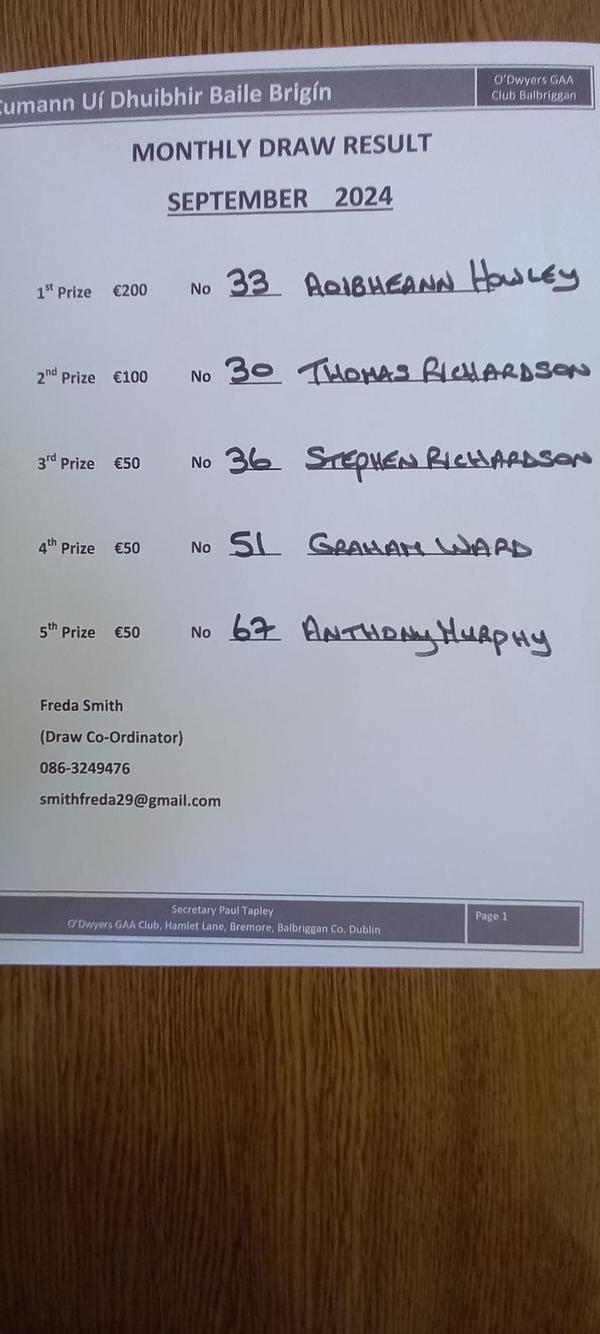 Cumann Uí Dhuibhir Baile Brigín
O'Dwyers GAA
Club Balbriggan
MONTHLY DRAW RESULT
SEPTEMBER 2024
1st Prize €200 No 33 AOIBHEANN HOWLEY
2nd Prize €100 No 30 THOMAS RICHARDSON
3rd Prize €50 No 36 STEPHEN RICHARDSON
4th Prize €50 No 51 GRAHAM WARD
5th Prize €50 No 67 ANTHONY MURPHY
Freda Smith
(Draw Co-Ordinator)
086-3249476
smithfreda29@gmail.com
Secretary Paul Tapley
O'Dwyers GAA Club, Hamlet Lane, Bremore, Balbriggan Co. Dublin
Page 1